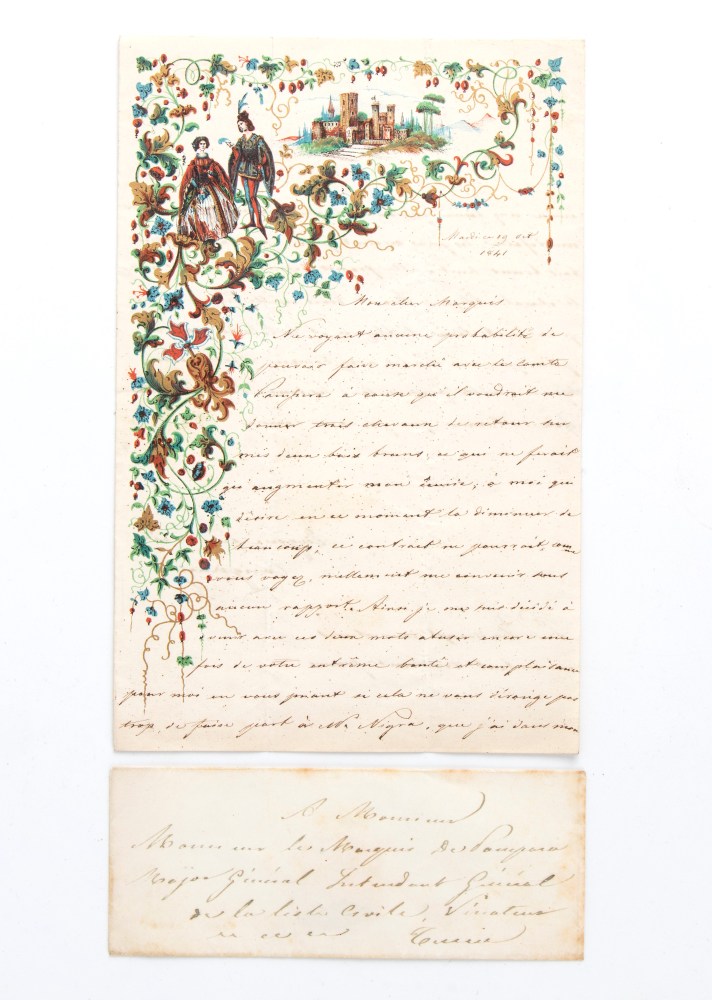 Mardi 19 oct
1841
Mon cher Marquis
Ne voyant aucune probabilité de
pouvoir faire marché avec le comte
Pampara à cause qu'il voudrait me
donner trois chevaux de retour sur
mes deux bais bruns, ce qui ne ferait
qu'augmenter mon écurie, à moi qui
désire en ce moment la diminuer de
beaucoup, ce contrat ne pourrait, comme
vous voyez, nullement me convenir sous
aucun rapport. Ainsi je me suis décidé à
vous avec ces deux mots abuser encore une
fois de votre extrême bonté et complaisance
pour moi en vous priant si cela ne vous dérange pas
trop, de faire part à Mr Nigra, que j'ai dans mon
A Monsieur
Monsieur les Marquis de Pampara
Major Général Intendant Général
de la liste Civile, Sénateur